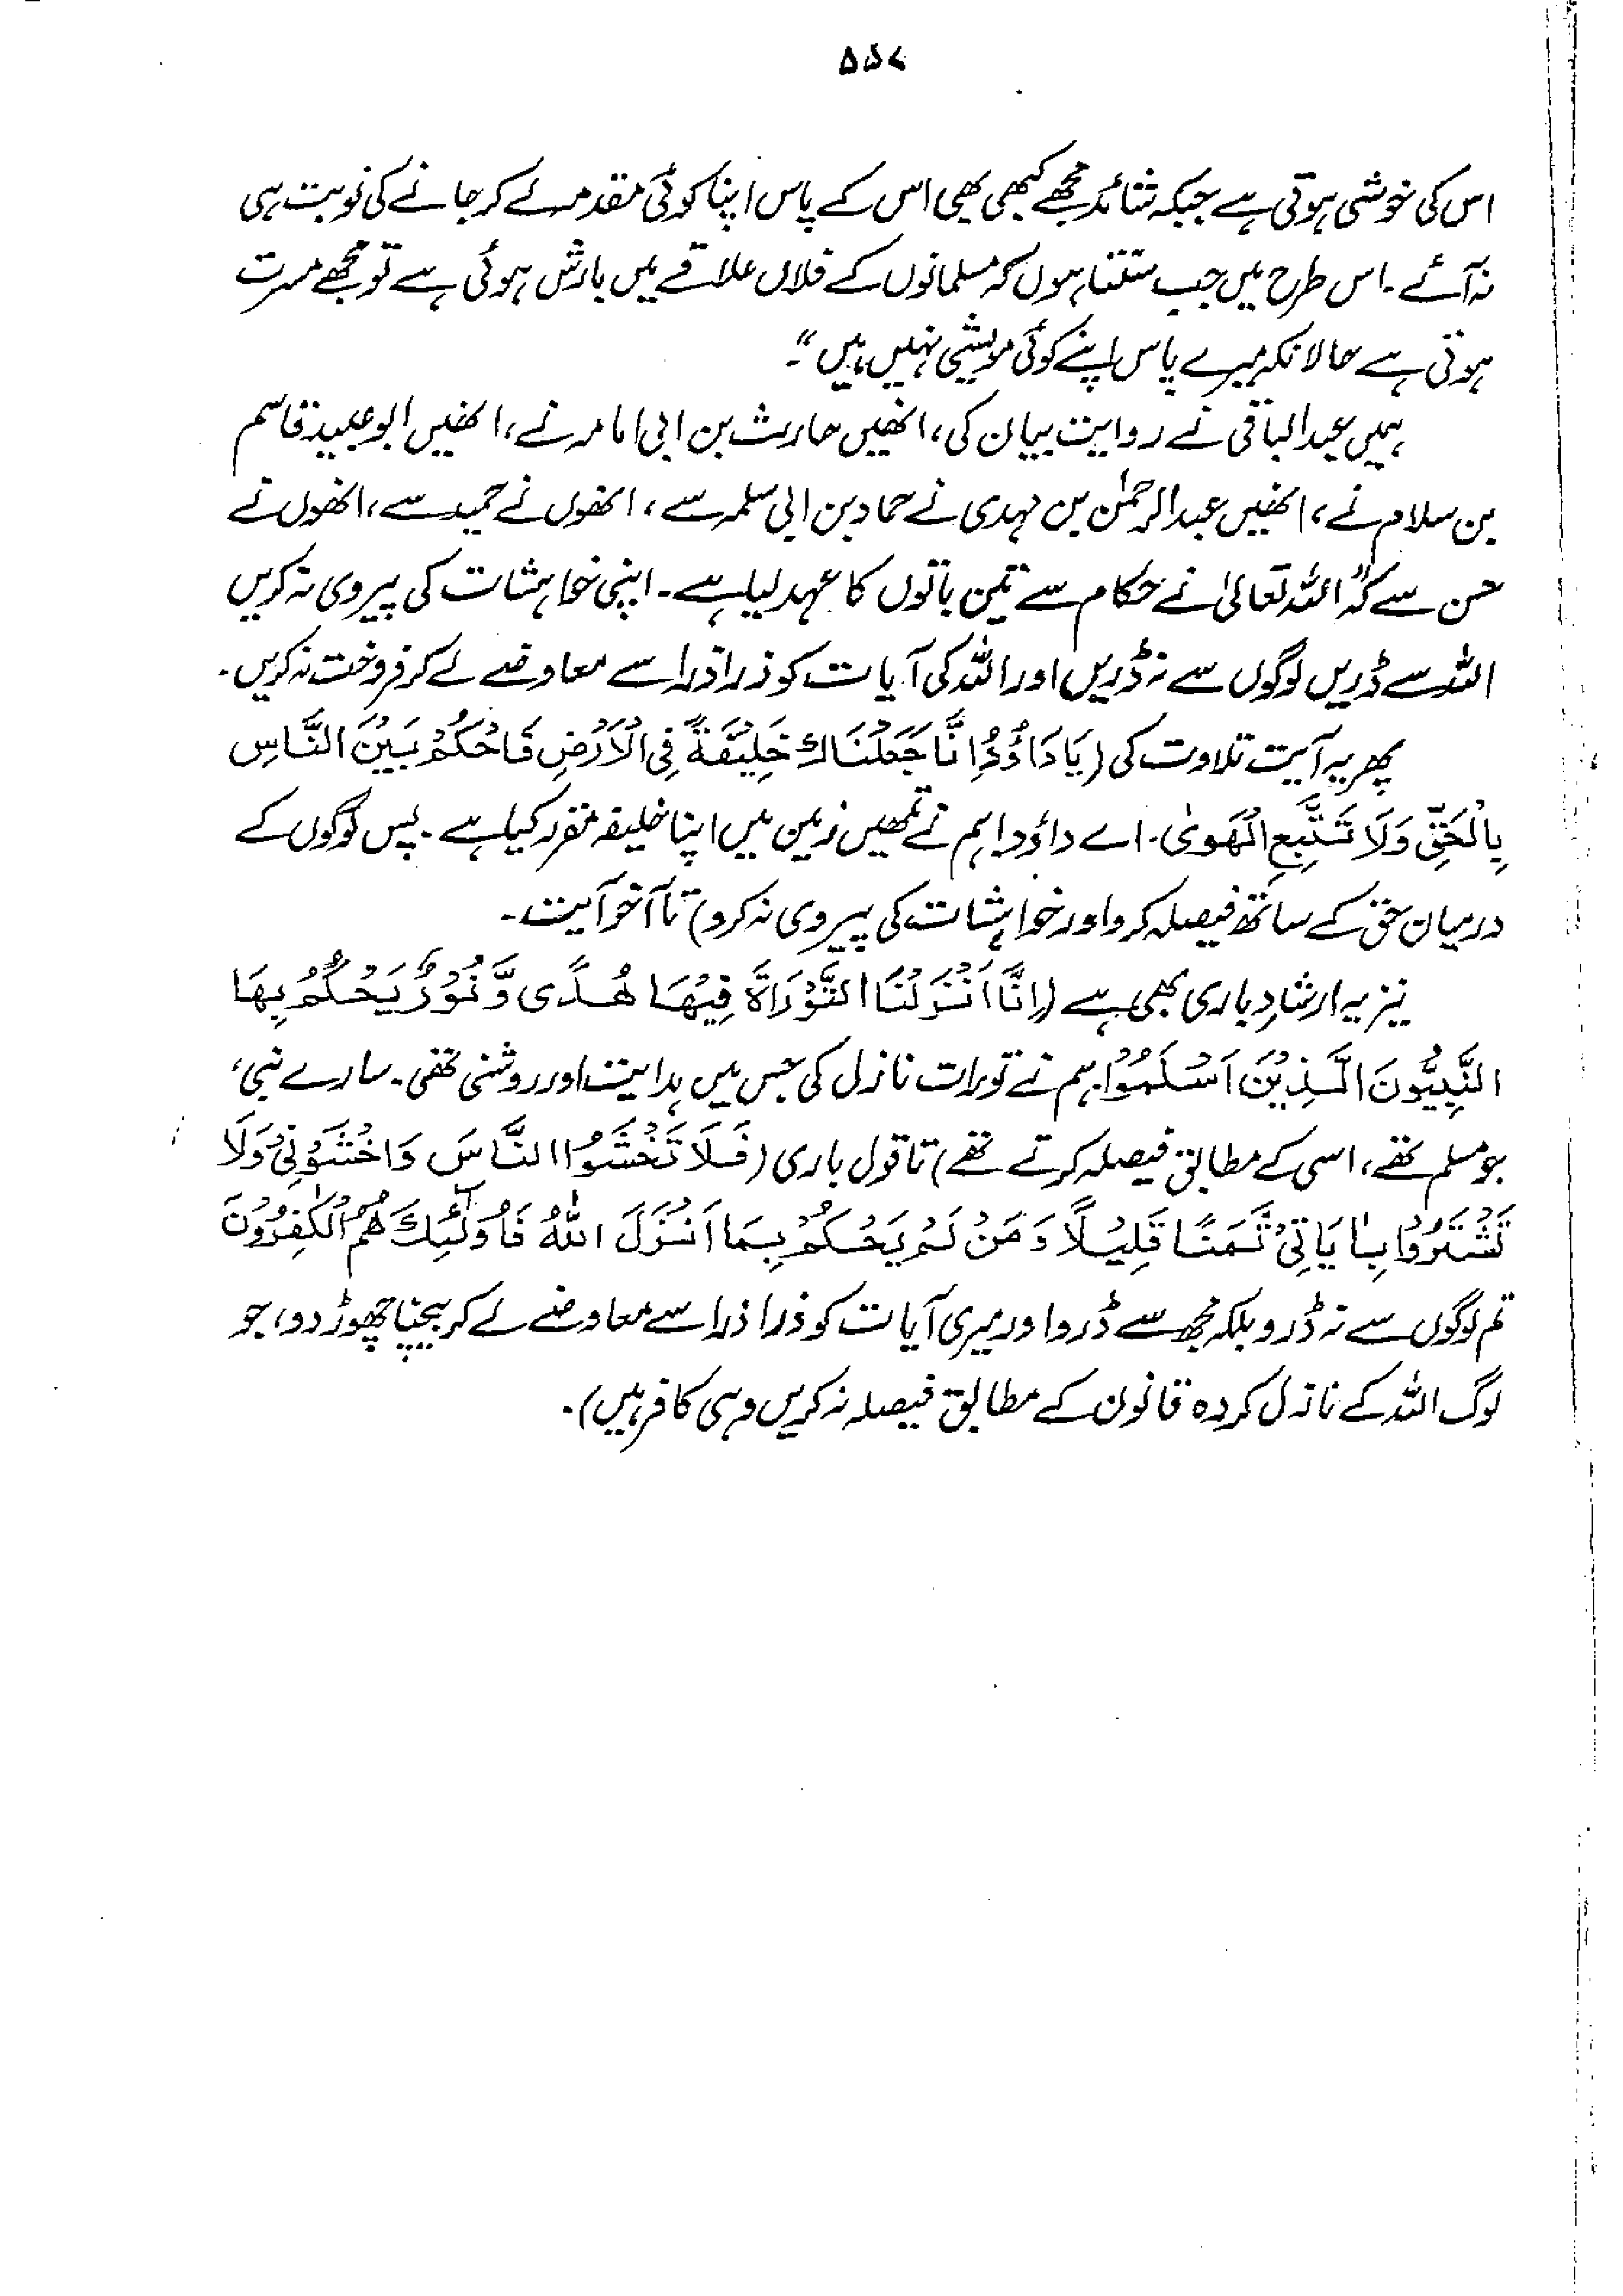 ۵۵۷
اس کی خوشی ہوتی ہے جبکہ شائد مجھے کبھی بھی اس کے پاس اپنا کوئی مقدمہ لے کر جانے کی نوبت ہی
نہ آئے ۔ اس طرح میں جب سنتا ہوں کہ مسلمانوں کے فلاں علاقے میں بارش ہوئی ہے تو مجھے مسرت
ہوتی ہے حالانکہ میرے پاس اپنے کوئی مویشی نہیں ہیں "۔
ہمیں عبدالباقی نے روایت بیان کی، انھیں حارث بن ابی امامہ نے، انھیں ابو عبید قاسم
بن سلام نے، انھیں عبدالرحمٰن بن مہدی نے حماد بن ابی سلمہ سے، انھوں نے حمید سے، انھوں نے
حسن سے کہ" اللہ تعالیٰ نے حکام سے تین باتوں کا عہد لیا ہے۔ اپنی خواہشات کی پیروی نہ کریں
اللہ سے ڈریں لوگوں سے نہ ڈریں اور اللہ کی آیات کو ذرا ذرا سے معاوضے لے کر فروخت نہ کریں۔
پھر یہ آیت تلاوت کی (يَا دَاوٗدُ اِنَّا جَعَلْنَاكَ خَلِيْفَةً فِي الْاَرْضِ فَاحْكُمْ بَيْنَ النَّاسِ
بِالْحَقِّ وَلَا تَتَّبِعِ الْهَوىٰ۔ اے داؤد! ہم نے تمھیں زمین میں اپنا خلیفہ مقرر کیا ہے ۔ پس لوگوں کے
درمیان حق کے ساتھ فیصلہ کرو اور خواہشات کی پیروی نہ کرو) تا آخر آیت۔
نیز یہ ارشادِ باری بھی ہے (اِنَّا اَنْزَلْنَا التَّوْرَاةَ فِيْهَا هُدًى وَّ نُوْرٌ يَحْكُمُ بِهَا
النَّبِيُّونَ الَّذِيْنَ اَسْلَمُوْا۔ ہم نے تورات نازل کی جس میں ہدایت اور روشنی تھی ۔ سارے نبی،
جو مسلم تھے، اسی کے مطابق فیصلہ کرتے تھے) تا قول باری (فَلَا تَخْشَوُا النَّاسَ وَاخْشَوْنِيْ وَلَا
تَشْتَرُوْا بِاٰيَاتِيْ ثَمَنًا قَلِيْلًا وَمَنْ لَمْ يَحْكُمْ بِمَا اَنْزَلَ اللهُ فَاُولٰٓئِكَ هُمُ الْكٰفِرُوْنَ
تم لوگوں سے نہ ڈرو بلکہ مجھ سے ڈرو اور میری آیات کو ذرا ذرا سے معاوضے لے کر بیچنا چھوڑ دو، جو
لوگ اللہ کے نازل کردہ قانون کے مطابق فیصلہ نہ کریں وہی کافر ہیں)۔